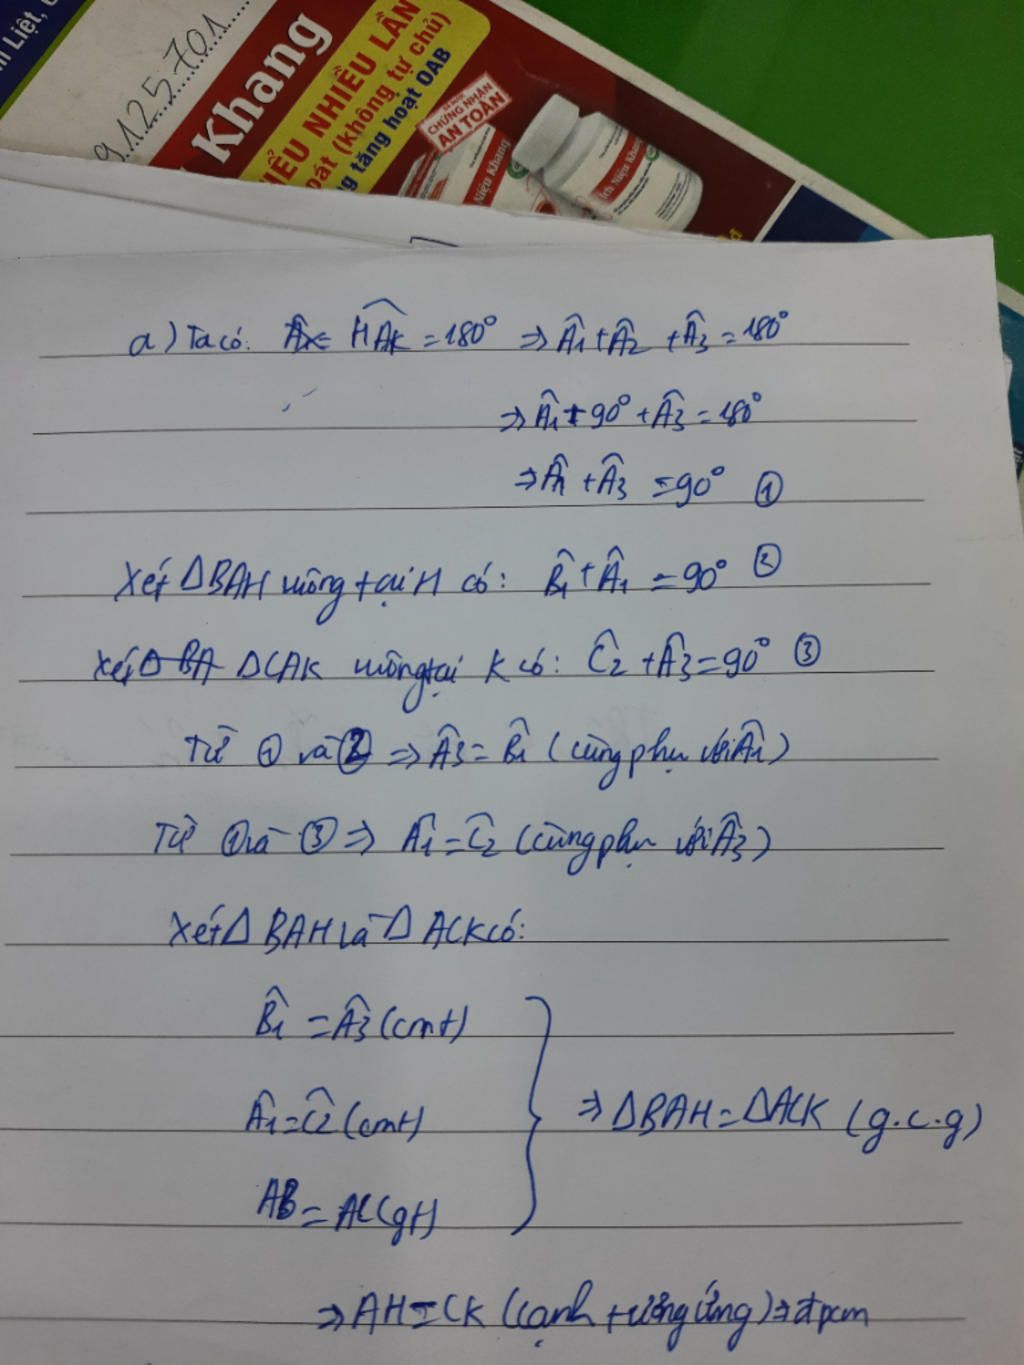 ni Liệt,
9125701
Khang
IỂU NHIỀU LẦN
oát (Không tự chủ)
g tăng hoạt OAB
CHỨNG NHẬN
AN TOÀN
Niệu Khang
Ích Niệu Khang
a) Ta có: HÂK = 180° ⇒ Â1 + Â2 + Â3 = 180°
⇒ Â1 + 90° + Â3 = 180°
⇒ Â1 + Â3 = 90° ①
Xét ΔBAH vuông tại H có: B̂1 + Â1 = 90° ②
Xét Δ BA ΔCAK vuông tại K có: Ĉ2 + Â3 = 90° ③
Từ ① và ② ⇒ Â3 = B̂1 (cùng phụ với Â1)
Từ ① và ③ ⇒ Â1 = Ĉ2 (cùng phụ với Â3)
Xét Δ BAH và Δ ACK có:
B̂1 = Â3 (cmt)
Â1 = Ĉ2 (cmt)
⇒ ΔBAH = ΔACK (g.c.g)
AB = AC (gt)
⇒ AH = CK (cạnh tương ứng) ⇒ đpcm